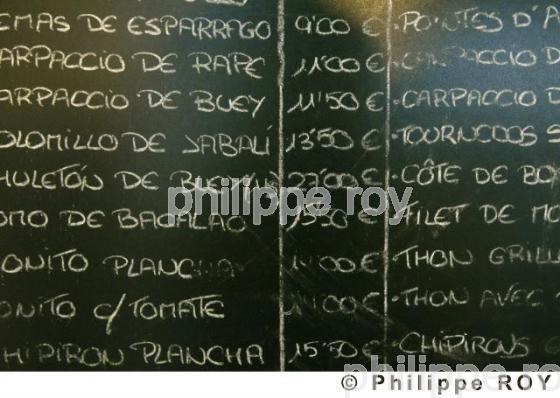 EMAS DE ESPARRAGO 9'00 € · POINTES D'A
ARPACCIO DE RAPE 11'00 € · CARPACCIO D
ARPACCIO DE BUEY 11'50 € · CARPACCIO D
OLOMILLO DE JABALÍ 13'50 € · TOURNEDOS S
HULETÓN DE BUEY € · CÔTE DE BO
OMO DE BACALAO € · FILET DE MO
ONITO PLANCHA €. THON GRILL
ONITO c/ TOMATE €. THON AVEC
HIPIRON PLANCHA 15'50 €. CHIPIRONS
philippe roy
philippe roy
© Philippe ROY